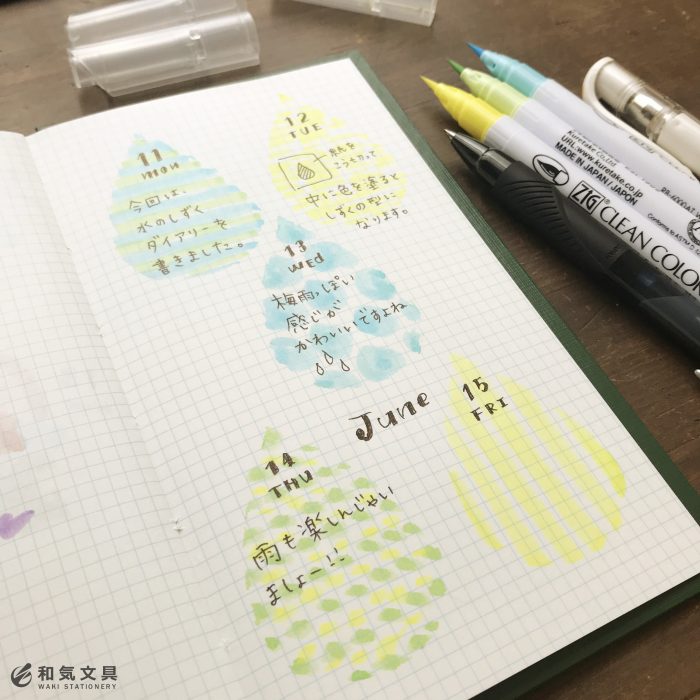 11
mon
今回は、
水のしずく
ダイアリーを
書きました。
12
TUE
紙を
こう切って
中に色を塗ると
しずくの型に
なります。
13
WEd
梅雨っぽい
感じが
かわいいですよね
June
14
THU
雨も楽しんじゃい
ましょー!!
15
FRI
Kuretake Co.,Ltd
URL:WWW.KURETAKE.
MADE IN JAPAN/JAPON
ZIG CLEAN COLOR
和気文具
WAKI STATIONERY